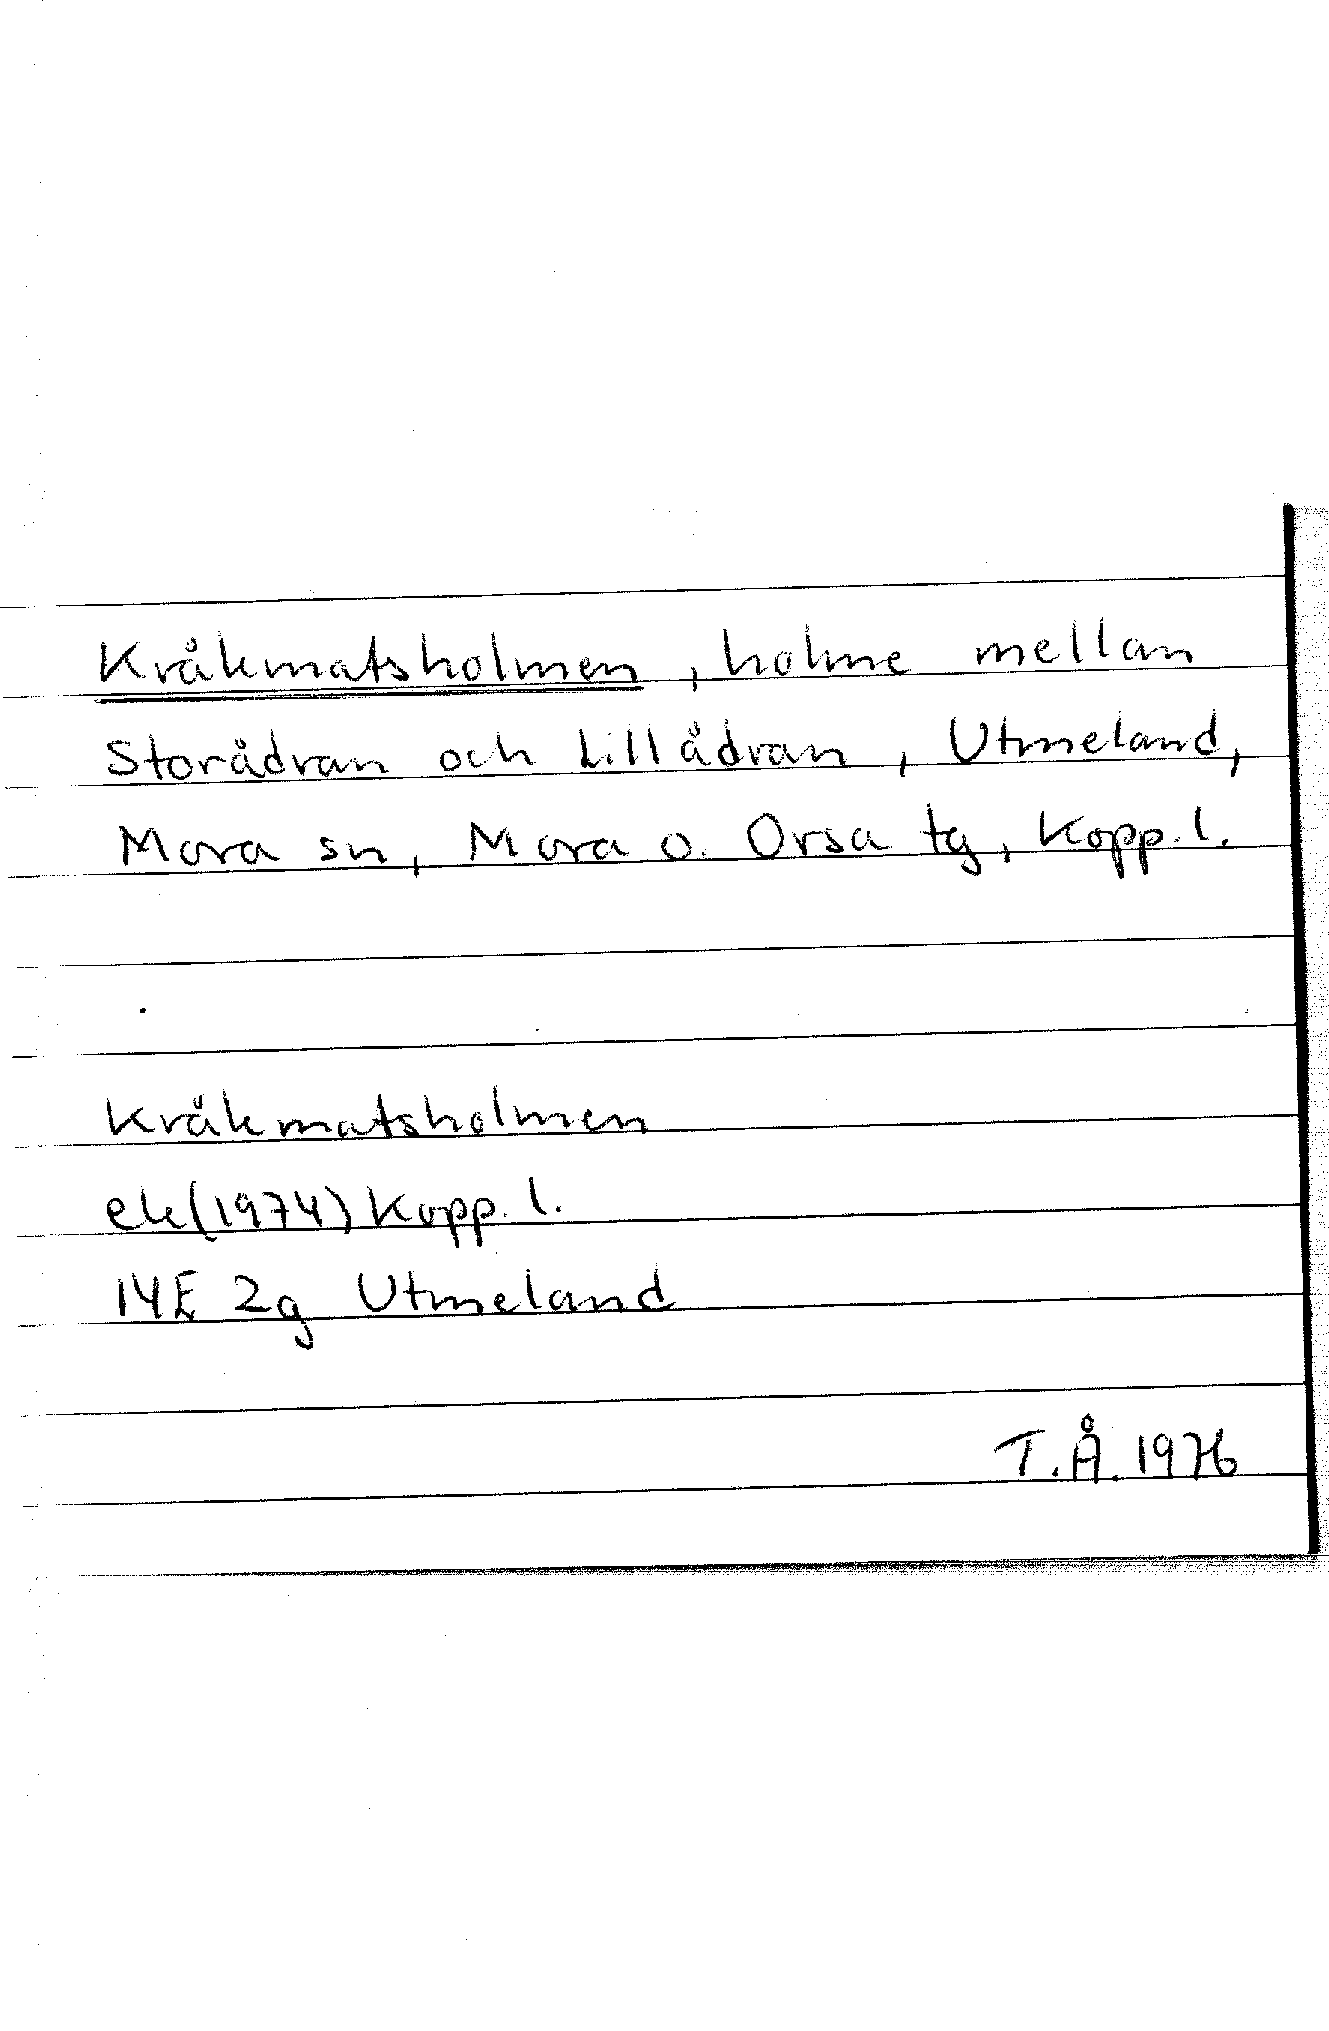 Kråkmatsholmen, holme mellan
Storådran och Lillådran, Utmeland,
Mora sn, Mora o. Orsa tg, Kopp. l.
Kråkmatsholmen
ek(1974) Kopp. l.
14E 2g Utmeland
T.Å. 1976